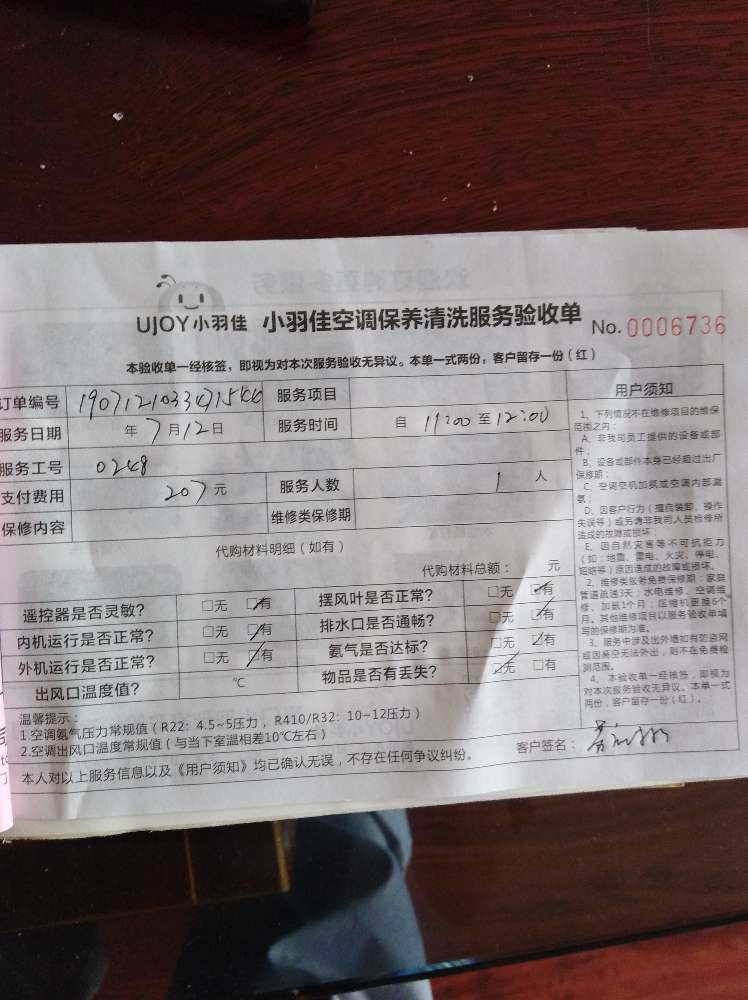 UJOY小羽佳 小羽佳空调保养清洗服务验收单 No. 0006736
本验收单一经核签，即视为对本次服务验收无异议。本单一式两份，客户留存一份（红）
订单编号 服务项目
服务日期 年 7月12日 服务时间 自 11:00 至 12:00
服务工号 0248
支付费用 207元 服务人数 1 人
保修内容 维修类保修期
代购材料明细（如有）
代购材料总额： 元
遥控器是否灵敏？ □无 ☑有 摆风叶是否正常？ □无 ☑有
内机运行是否正常？ □无 ☑有 排水口是否通畅？ □无 ☑有
外机运行是否正常？ □无 ☑有 氨气是否达标？ □无 ☑有
出风口温度值？ ℃ 物品是否有丢失？ ☑无 □有
温馨提示：
1.空调氨气压力常规值（R22：4.5~5压力，R410/R32：10~12压力）
2.空调出风口温度常规值（与当下室温相差10℃左右）
客户签名：
本人对以上服务信息以及《用户须知》均已确认无误，不存在任何争议纠纷。
用户须知
1、下列情况不在维修项目的维保
范围之内：
A、非我司员工提供的设备或部
件；
B、设备或部件本身已经超过出厂
保修期；
C、空调空机加氨或空调内部漏
氨；
D、因客户行为（擅自装卸、操作
失误等）或另请非我司人员检修所
造成的故障或损坏；
E、因自然灾害等不可抗拒力
（如：地震、雷电、火灾、停电、
短路等）原因造成的故障或损坏。
2、维修类服务免费保修期：家庭
管道疏通3天；水电维修、空调维
修、加氨1个月；压缩机更换6个
月。其他维修项目以服务验收单填
写的保修期为准。
3、服务中涉及出外墙如有防盗网
或因高空无法外出，则不在免费检
测范围。
4、本验收单一经核签，即视为
对本次服务验收无异议。本单一式
两份，客户留存一份（红）。